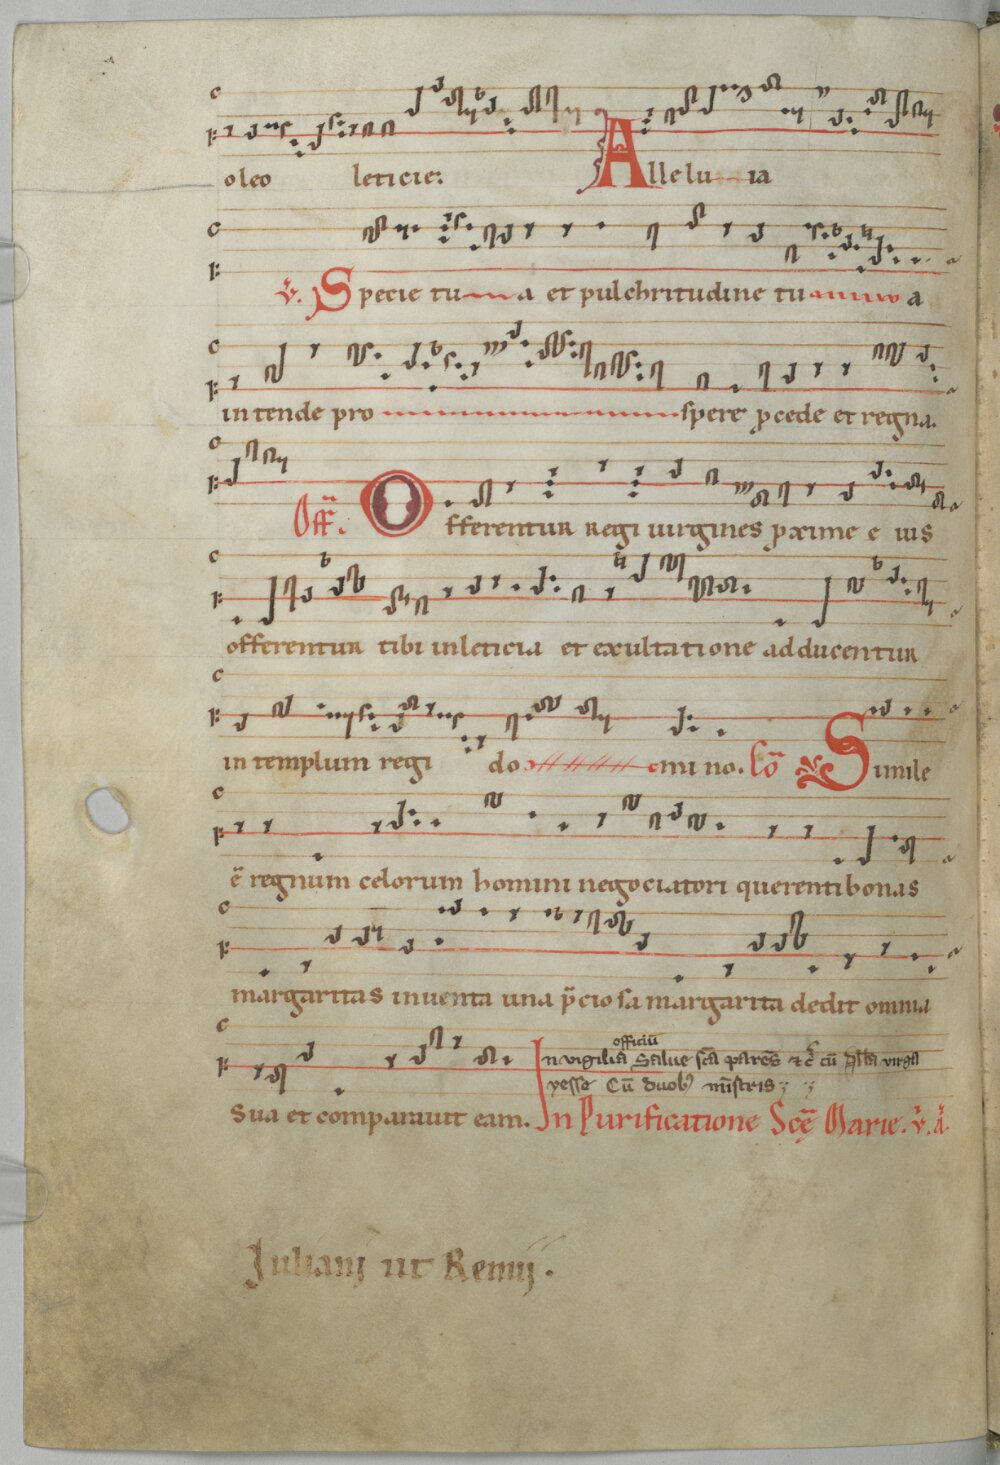 oleo leticie: Allelu ia
V. Specie tu a et pulchritudine tu a
in tende pro spere p̱cede et regna.
Off. Offerentur regi uirgines p̱xime e ius
offerentur tibi in leticia et exultatione adducentur
in templum regi do mi no. Co Simile
ē regnum celorum homini negociatori querenti bonas
margaritas inuenta una p̄ciosa margarita dedit omnia
officiū
In vigilia Salue sc̄a parēs cū virga
yesse Cū duobꝫ mīstris
sua et comparauit eam. In Purificatione Scē Marie. V. A.
Juliani ut Remij.